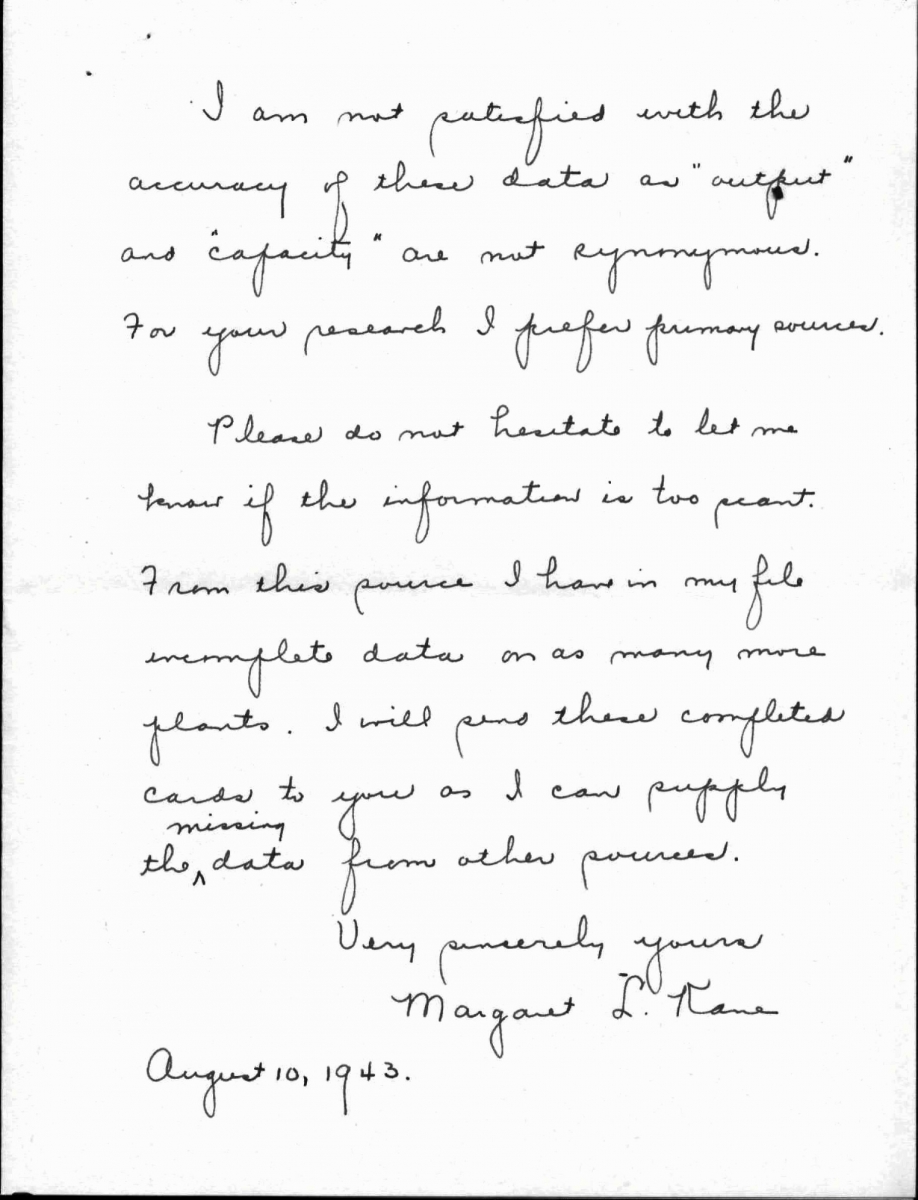 I am not satisfied with the
accuracy of these data as "output"
and "capacity" are not synonymous.
For your research I prefer primary sources.
Please do not hesitate to let me
know if the information is too scant.
From this source I have in my file
incomplete data on as many more
plants. I will send these completed
cards to you as I can supply
missing
the ^ data from other sources.
Very sincerely yours
Margaret L. Kane
August 10, 1943.